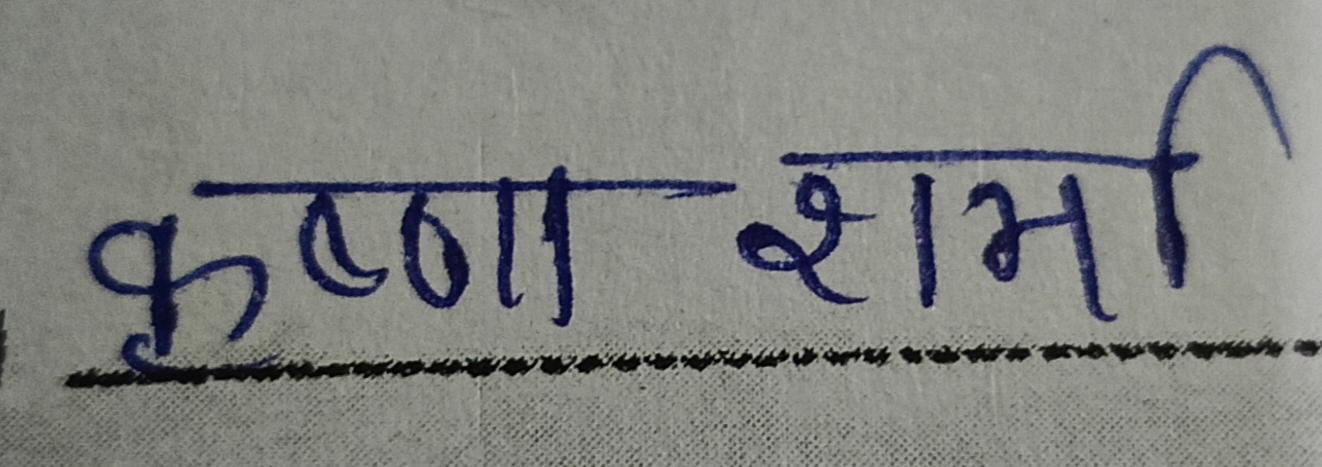 कृष्णा शर्मा